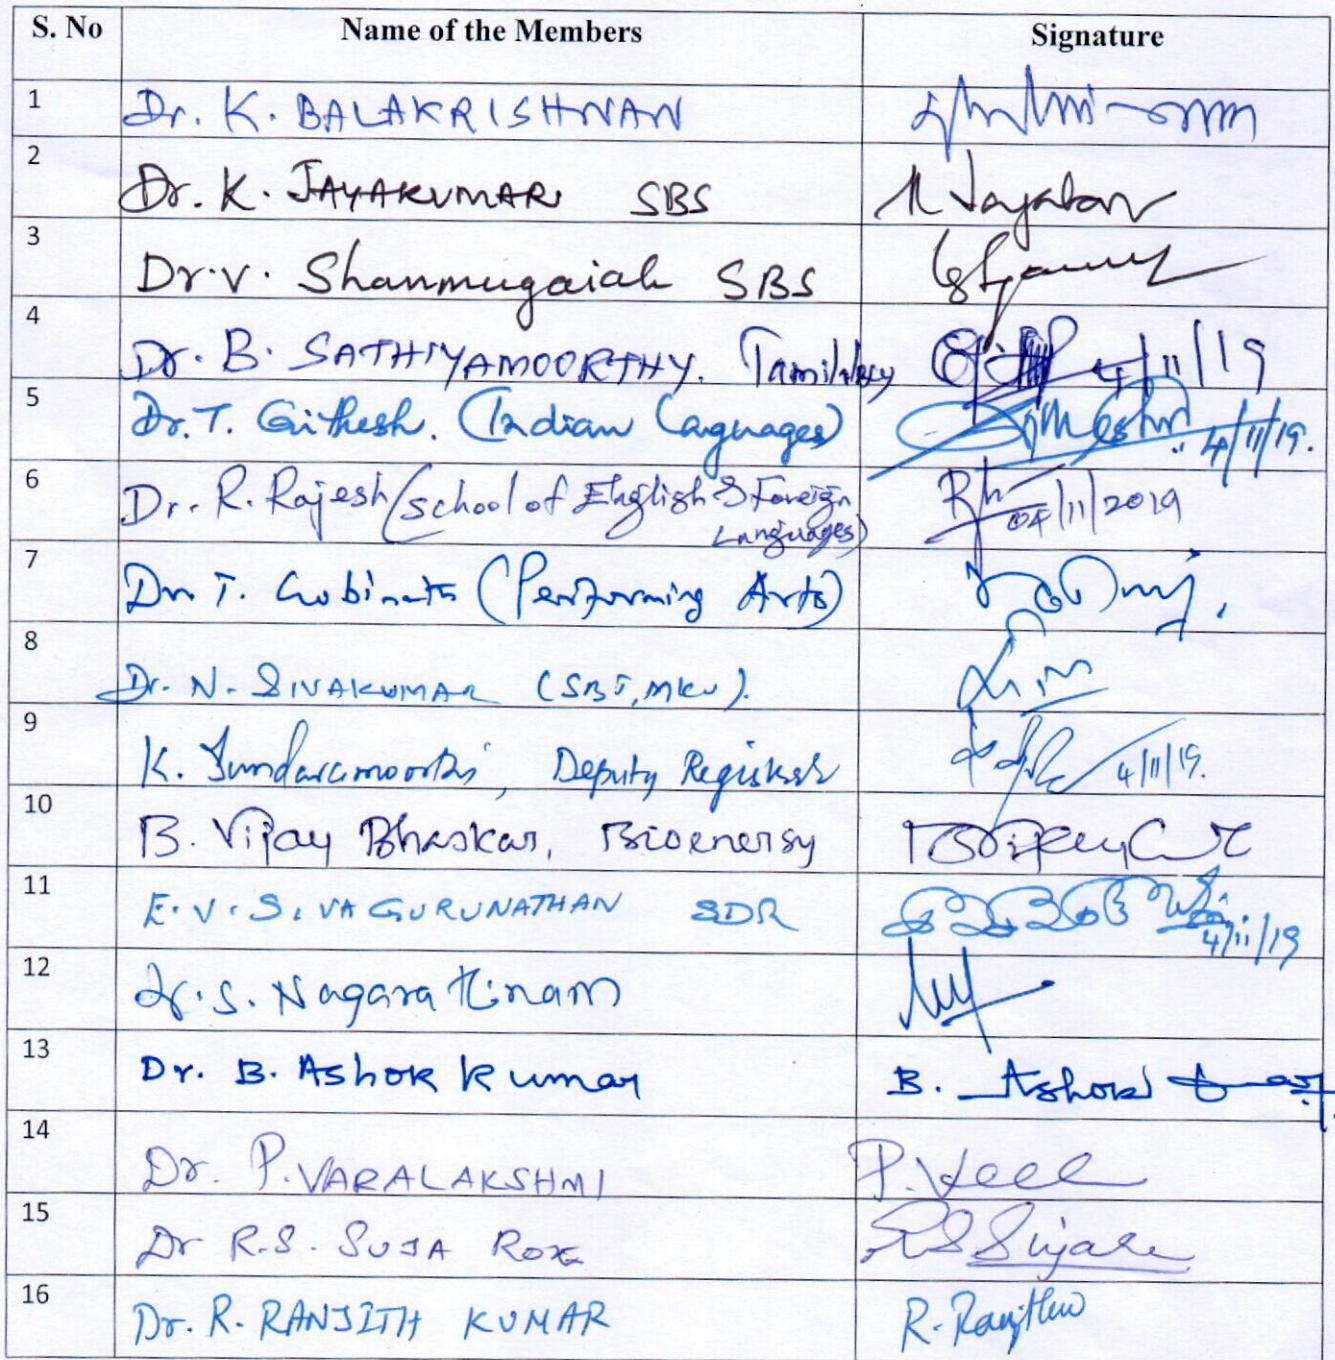 S. No Name of the Members Signature
1 Dr. K. BALAKRISHNAN
2 Dr. K. JAYAKUMAR SBS
3 Dr. V. Shanmugaiah SBS
4 Dr. B. SATHIYAMOORTHY. 4/11/19
5 Dr. T. Githesh. (Indian Languages) 4/11/19.
6 Dr. R. Rajesh (School of English & Foreign Languages) 04/11/2019
7 Dr. T. Gobinath (Performing Arts)
8 Dr. N. SIVAKUMAR (SBT, MKU).
9 K. Sundaramoorthi, Deputy Registrar 4/11/19.
10 B. Vijay Bhaskar, Bioenergy
11 E. V. SIVAGURUNATHAN SDR 4/11/19
12 Dr. S. Nagarathinam
13 Dr. B. Ashok Kumar B. Ashok
14 Dr. P. VARALAKSHMI
15 Dr R.S. SUJA ROSE
16 Dr. R. RANJITH KUMAR